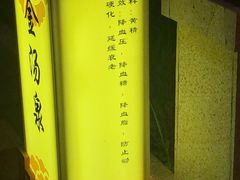 料：黄精
效：降血压，降血糖，降血脂，防止动
硬化，延缓衰老
金汤泉